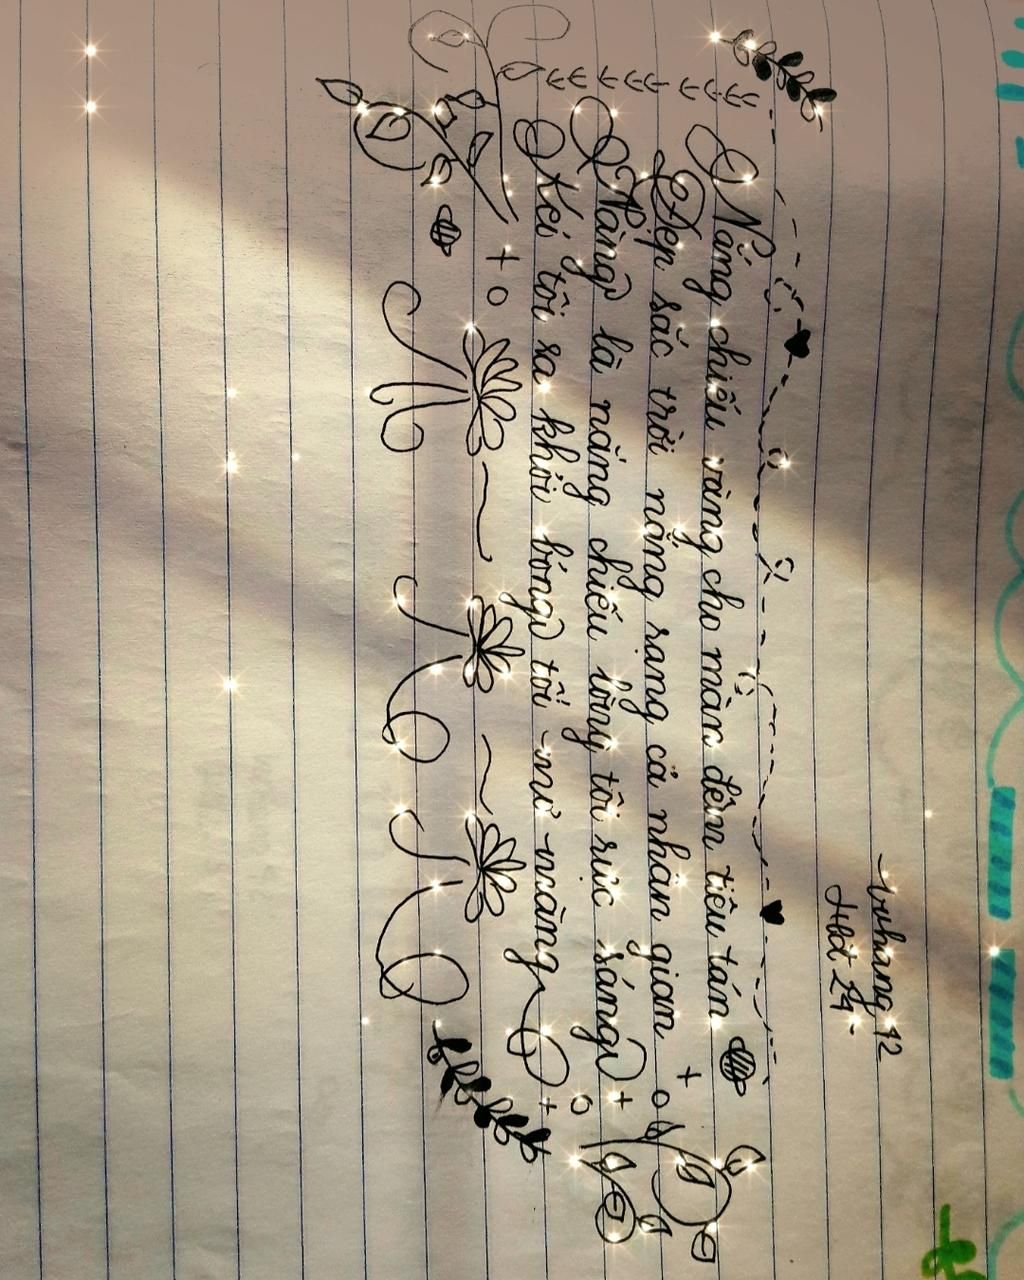 Nắng chiếu vàng cho màn đêm tiêu tán
Đẹp sắc trời nắng rạng cả nhân gian
Nàng là nắng chiếu lòng tôi rực sáng
Kéi tôi ra khỏi bóng tối mơ màng